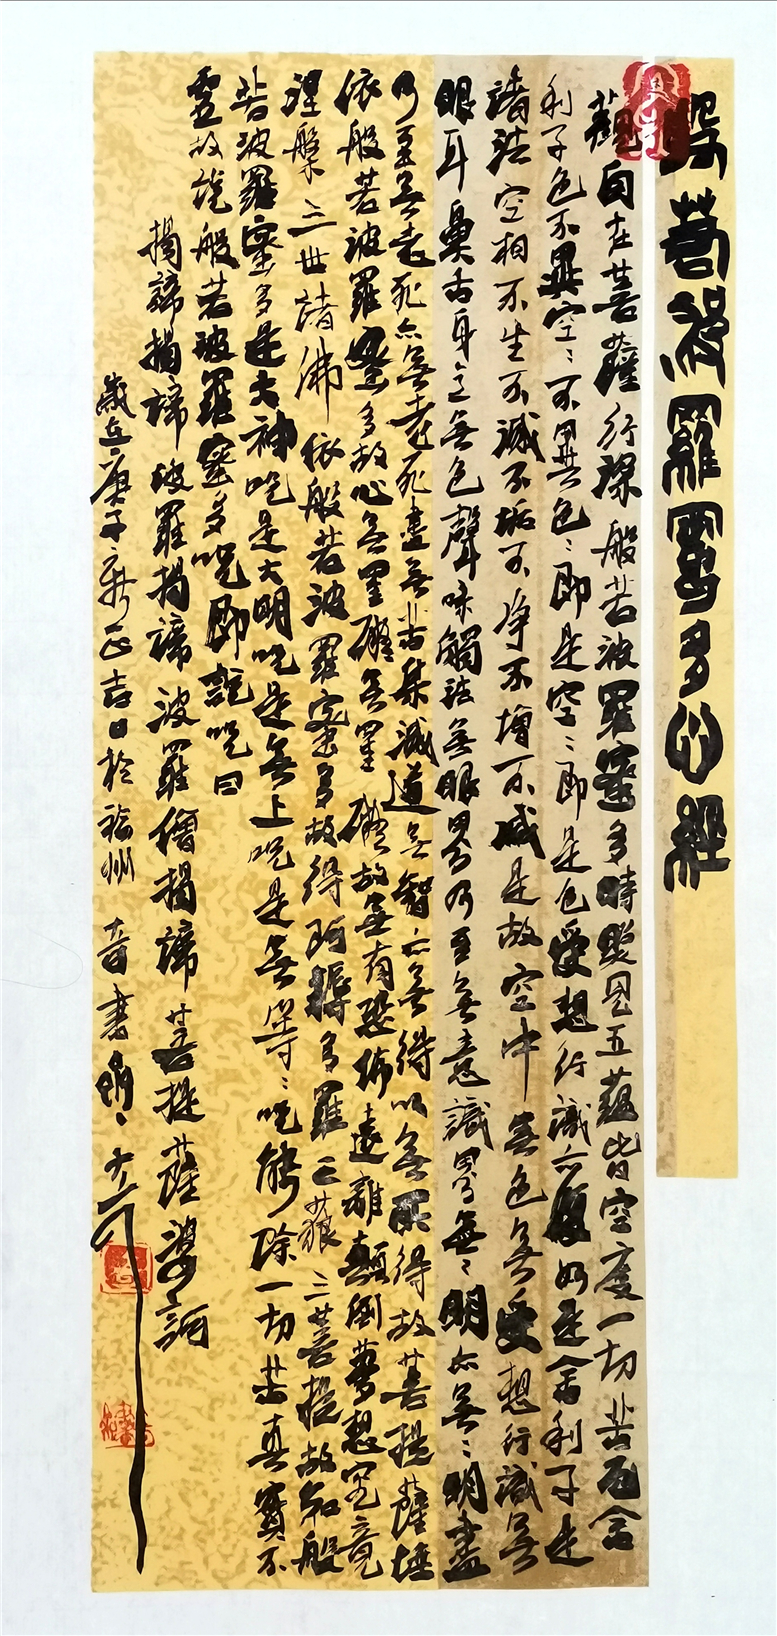 般若波羅蜜多心經
觀自在菩薩行深般若波羅蜜多時照見五蘊皆空度一切苦厄舍
利子色不異空〻不異色〻即是空〻即是色受想行識亦復如是舍利子是
諸法空相不生不滅不垢不净不增不減是故空中無色無受想行識無
眼耳鼻舌身意無色聲味觸法無眼界乃至無意識界無〻明亦無〻明盡
乃至無老死亦無老死盡無苦集滅道無智亦無得以無所得故菩提薩埵
依般若波羅蜜多故心無罣礙無罣礙故無有恐怖遠離顛倒夢想究竟
涅槃三世諸佛依般若波羅蜜多故得阿耨多羅三藐三菩提故知般
若波羅蜜多是大神咒是大明咒是無上咒是無等〻咒能除一切苦真實不
虛故說般若波羅蜜多咒即說咒曰
揭諦揭諦波羅揭諦波羅僧揭諦菩提薩婆訶
歲在庚子新正吉日於福州